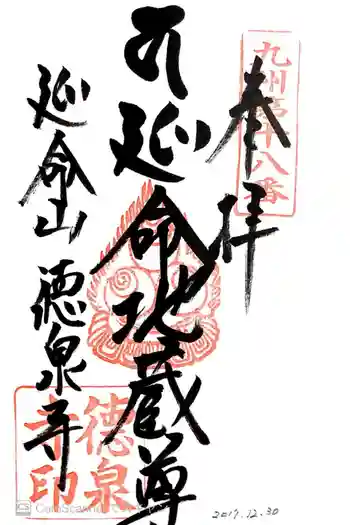 奉拝
九州第十八番
延命地蔵尊
延命山 徳泉寺
徳泉
寺印
2017.12.30
CamScanner